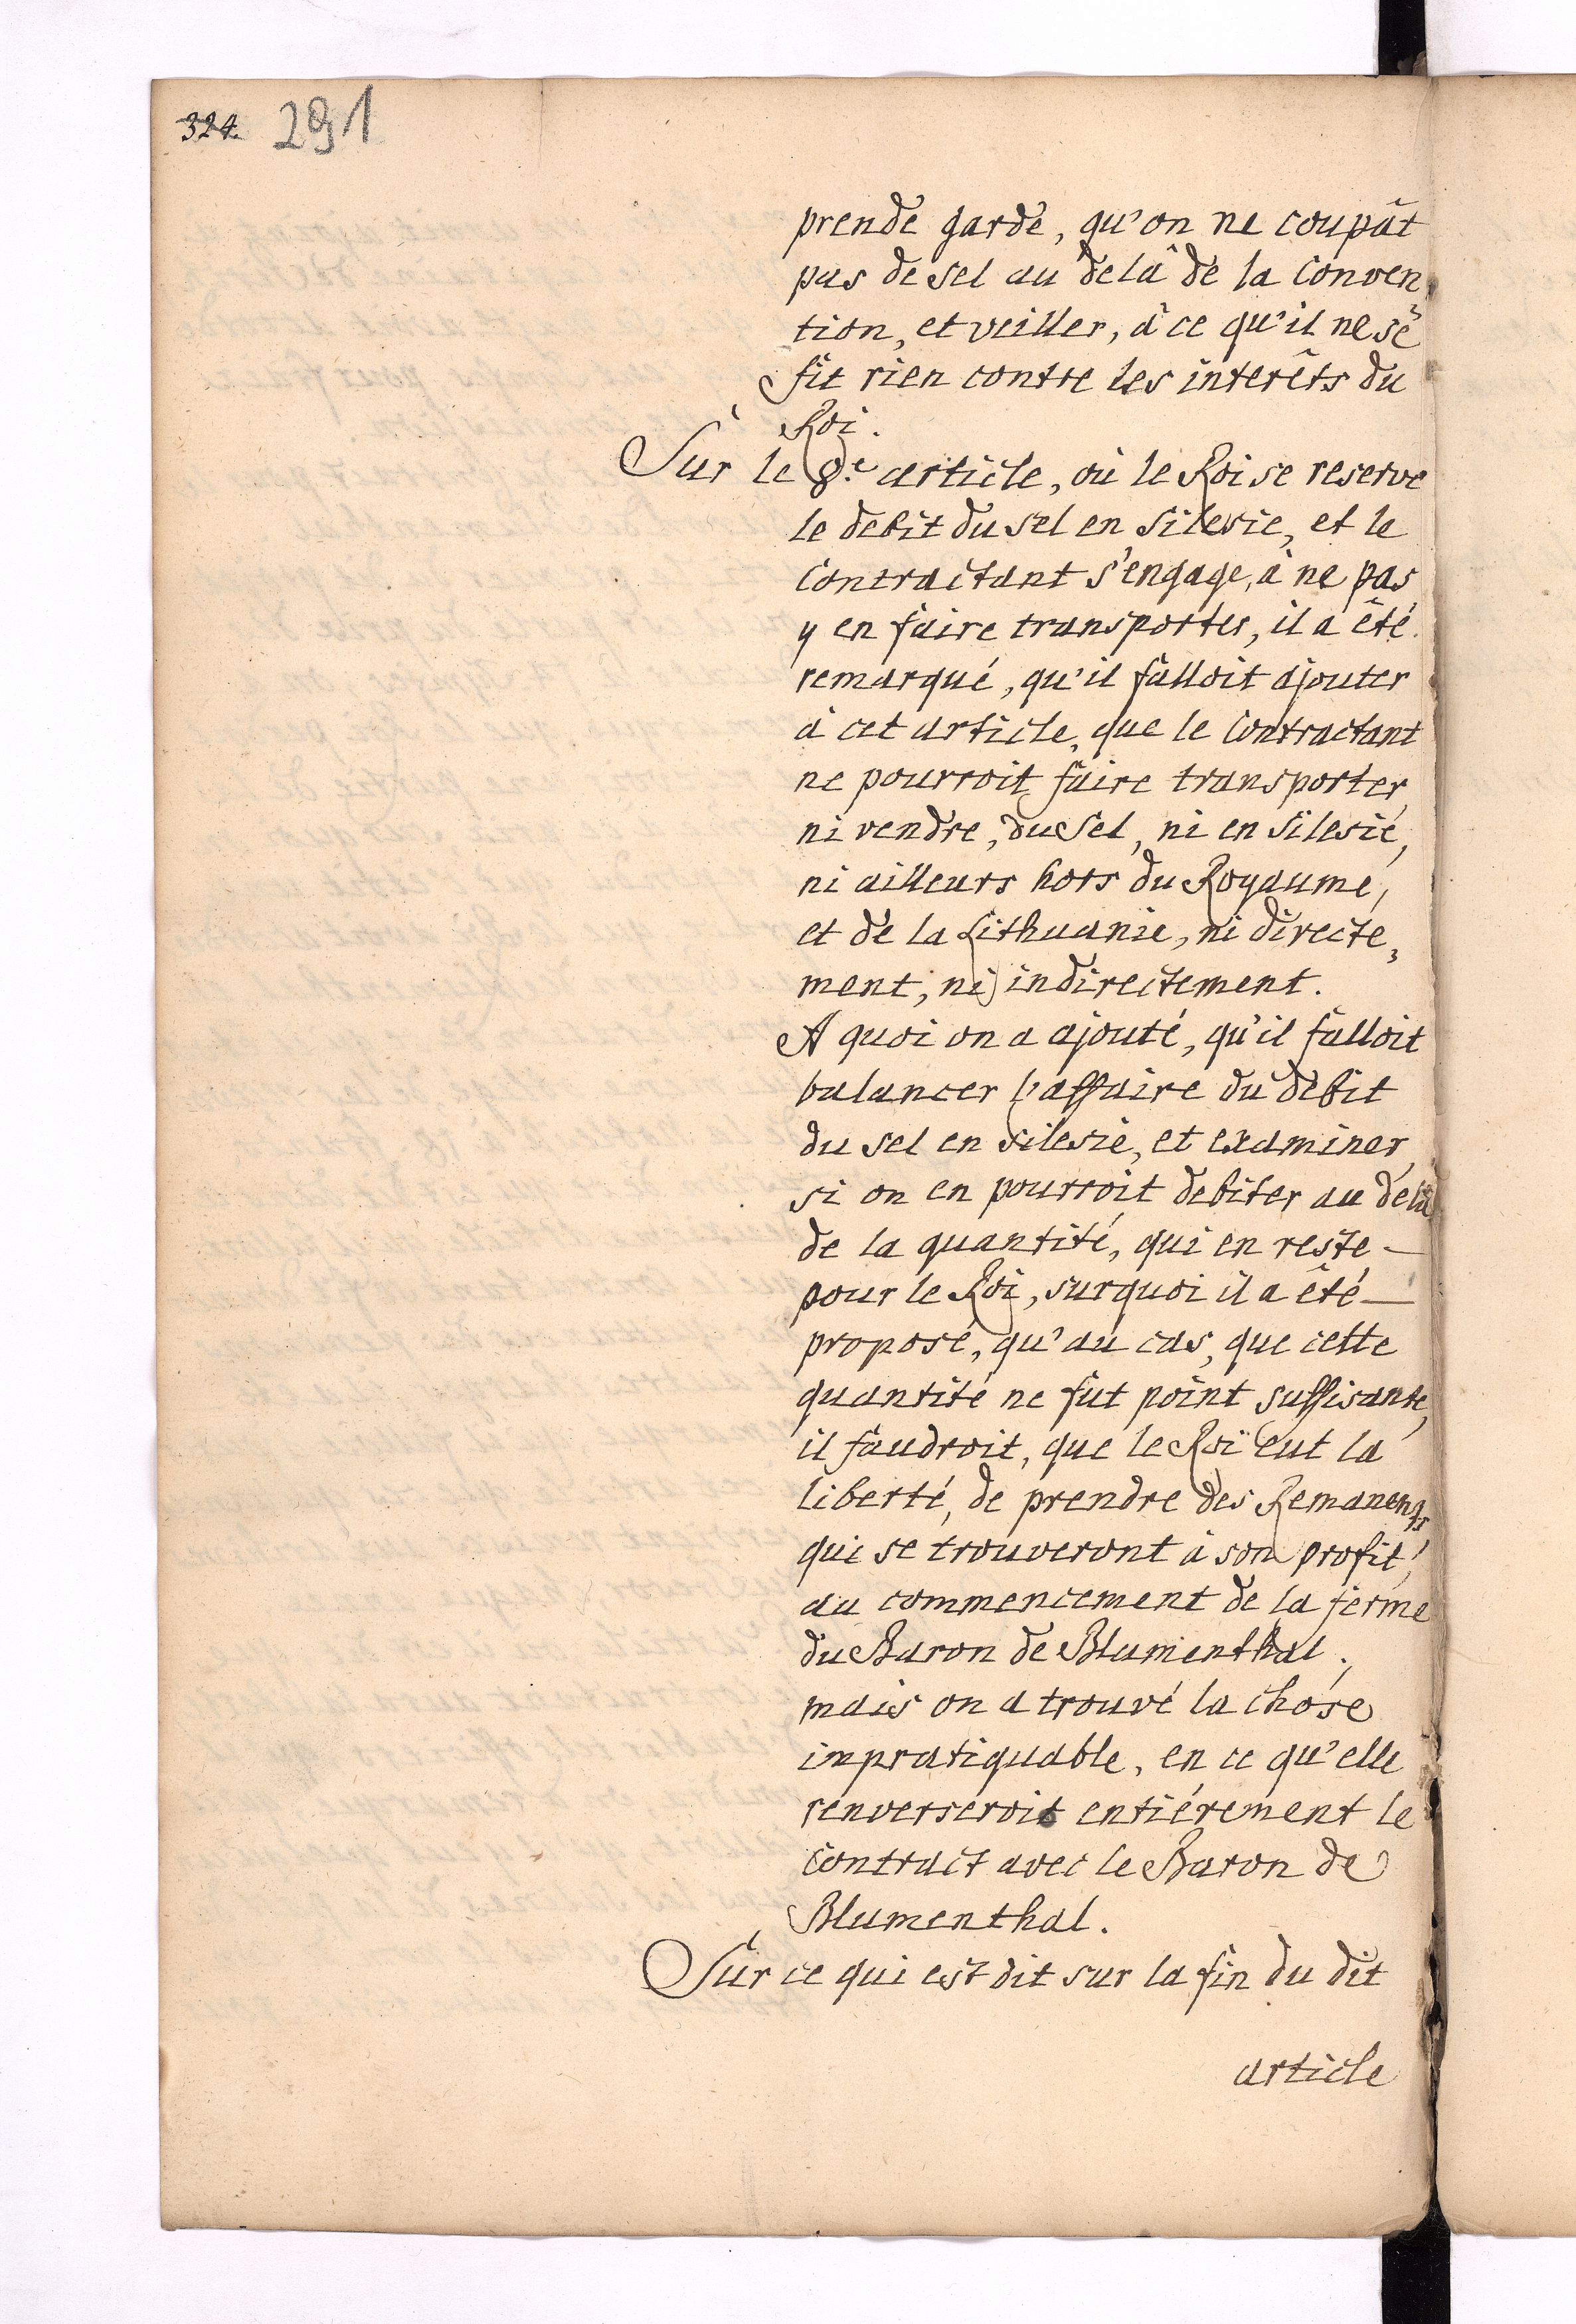 324. 291
prende garde, qu'on ne coupât
pas de sel au delà de la Conven-
tion, et veiller, à ce qu'il ne se
fit rien contre les interêts du
Roi.
Sur le 8.e article, où le Roi se reserve
le debit du sel en Silesie, et le
Contractant s'engage, à ne pas
y en faire transporter, il a êté
remarqué, qu'il falloit ajouter
à cet article, que le Contractant
ne pourroit faire transporter,
ni vendre, du Sel, ni en Silesie,
ni ailleurs hors du Royaume,
et de la Lithuanie, ni directe-
ment, ni indirectement.
A quoi on a ajouté, qu'il falloit
balancer l'affaire du debit
du sel en Silesie, et examiner,
si on en pourroit debiter au delà
de la quantité, qui en reste
pour le Roi, surquoi il a êté
proposé, qu'au cas, que cette
quantité ne fut point suffisante,
il faudroit, que le Roi eut la
liberté, de prendre des Remanents
qui se trouveront à son profit,
au commencement de la ferme
du Baron de Blumenthal;
mais on a trouvé la chose
impratiquable, en ce qu'elle
renverseroit entiérement le
Contract avec le Baron de
Blumenthal.
Sur ce qui est dit sur la fin du dit
article